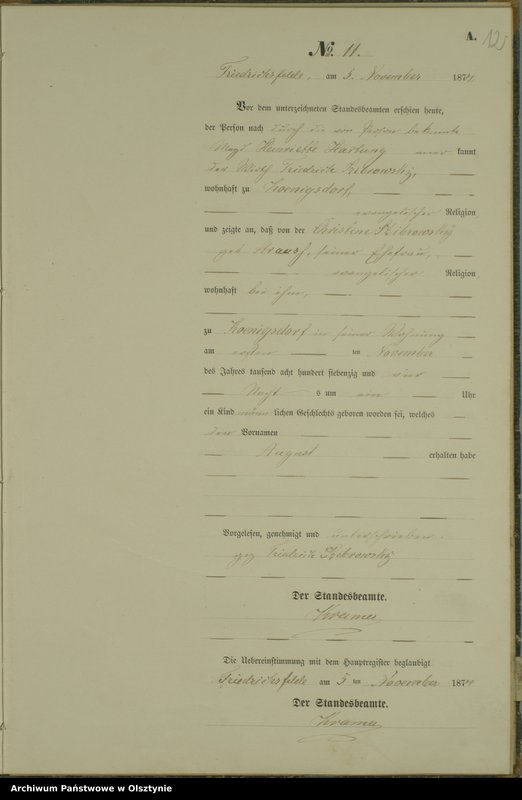 A.
12
No. 11.
Friedrichsfelde, am 5. November 1874
Vor dem unterzeichneten Standesbeamten erschien heute,
der Person nach durch die von Person bekannte
Magd Henriette Hartung aner kannt
der Friedrich Zibrowsky,
wohnhaft zu Koenigsdorf,
evangelischer Religion
und zeigte an, daß von der Christine Zibrowsky
geb. seiner Ehefrau,
evangelischer Religion
wohnhaft bei ihm,
zu Koenigsdorf in seiner Wohnung
am ersten ten November
des Jahres tausend acht hundert siebenzig und vier
Nacht s um ein Uhr
ein Kind männ lichen Geschlechts geboren worden sei, welches
den Vornamen
August erhalten habe
Vorgelesen, genehmigt und unterschrieben
gez Friedrich Zibrowsky
Der Standesbeamte.
Kramer
Die Uebereinstimmung mit dem Hauptregister beglaubigt
Friedrichsfelde am 5 ten November 1874
Der Standesbeamte.
Kramer
Archiwum Państwowe w Olsztynie